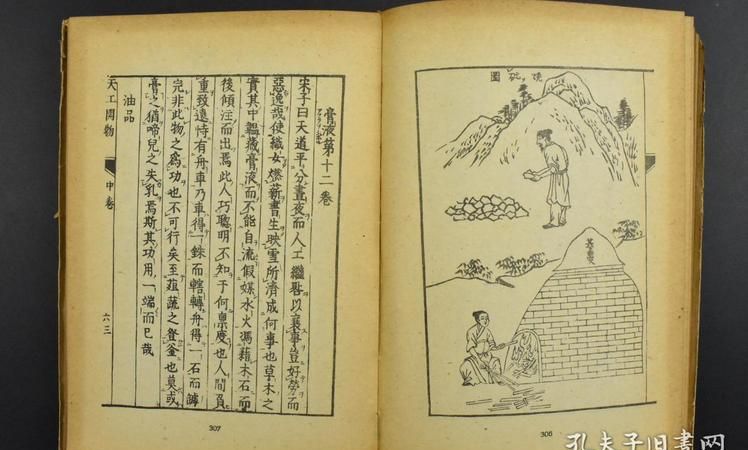 燒砒圖
306
膏液第十二卷
宋子曰天道平分晝夜而人工繼晷以襄事豈好勞而
惡逸哉使織女燃薪書生映雪所濟成何事也草木之
實其中韞藏膏液而不能自流假媒水火馮藉木石而
後傾注而出焉此人巧聰明不知于何稟度也人間負
重致遠恃有舟車乃車得一銖而轄轉舟得一石而罅
完非此物之為功也不可行矣至菹蔬之登釜也莫或
膏之猶啼兒之失乳焉斯其功用一端而已哉
油品
天工開物 中卷 六三
307
孔夫子旧书网